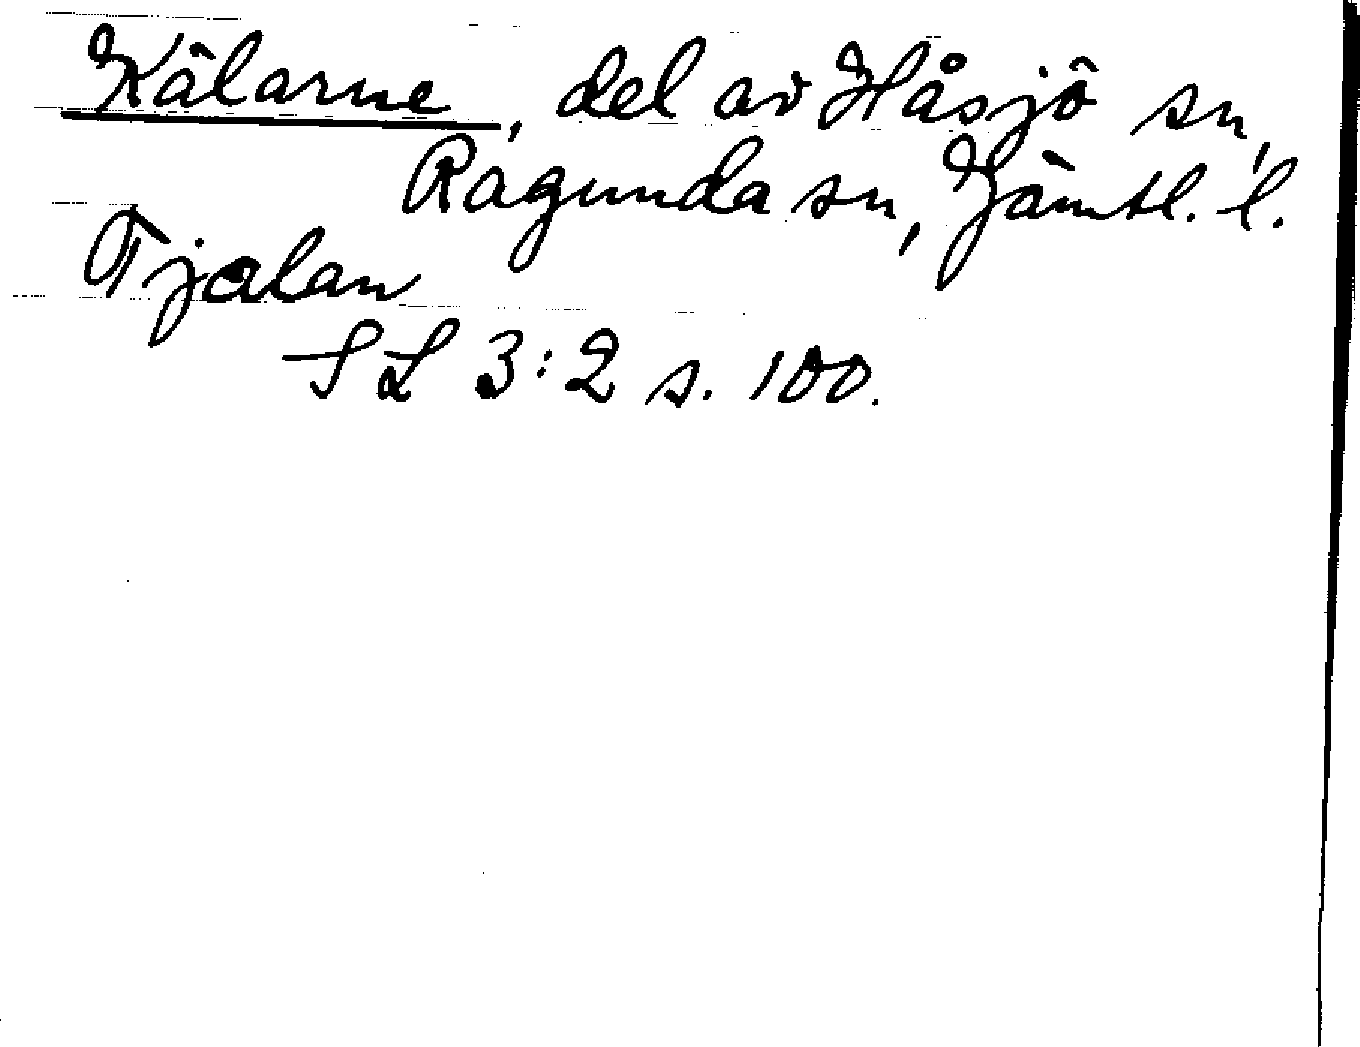 Kälarne, del av Håsjö sn,
Ragunda sn, Jämtl. l.
Tjalan
SL 3:2 s. 100.